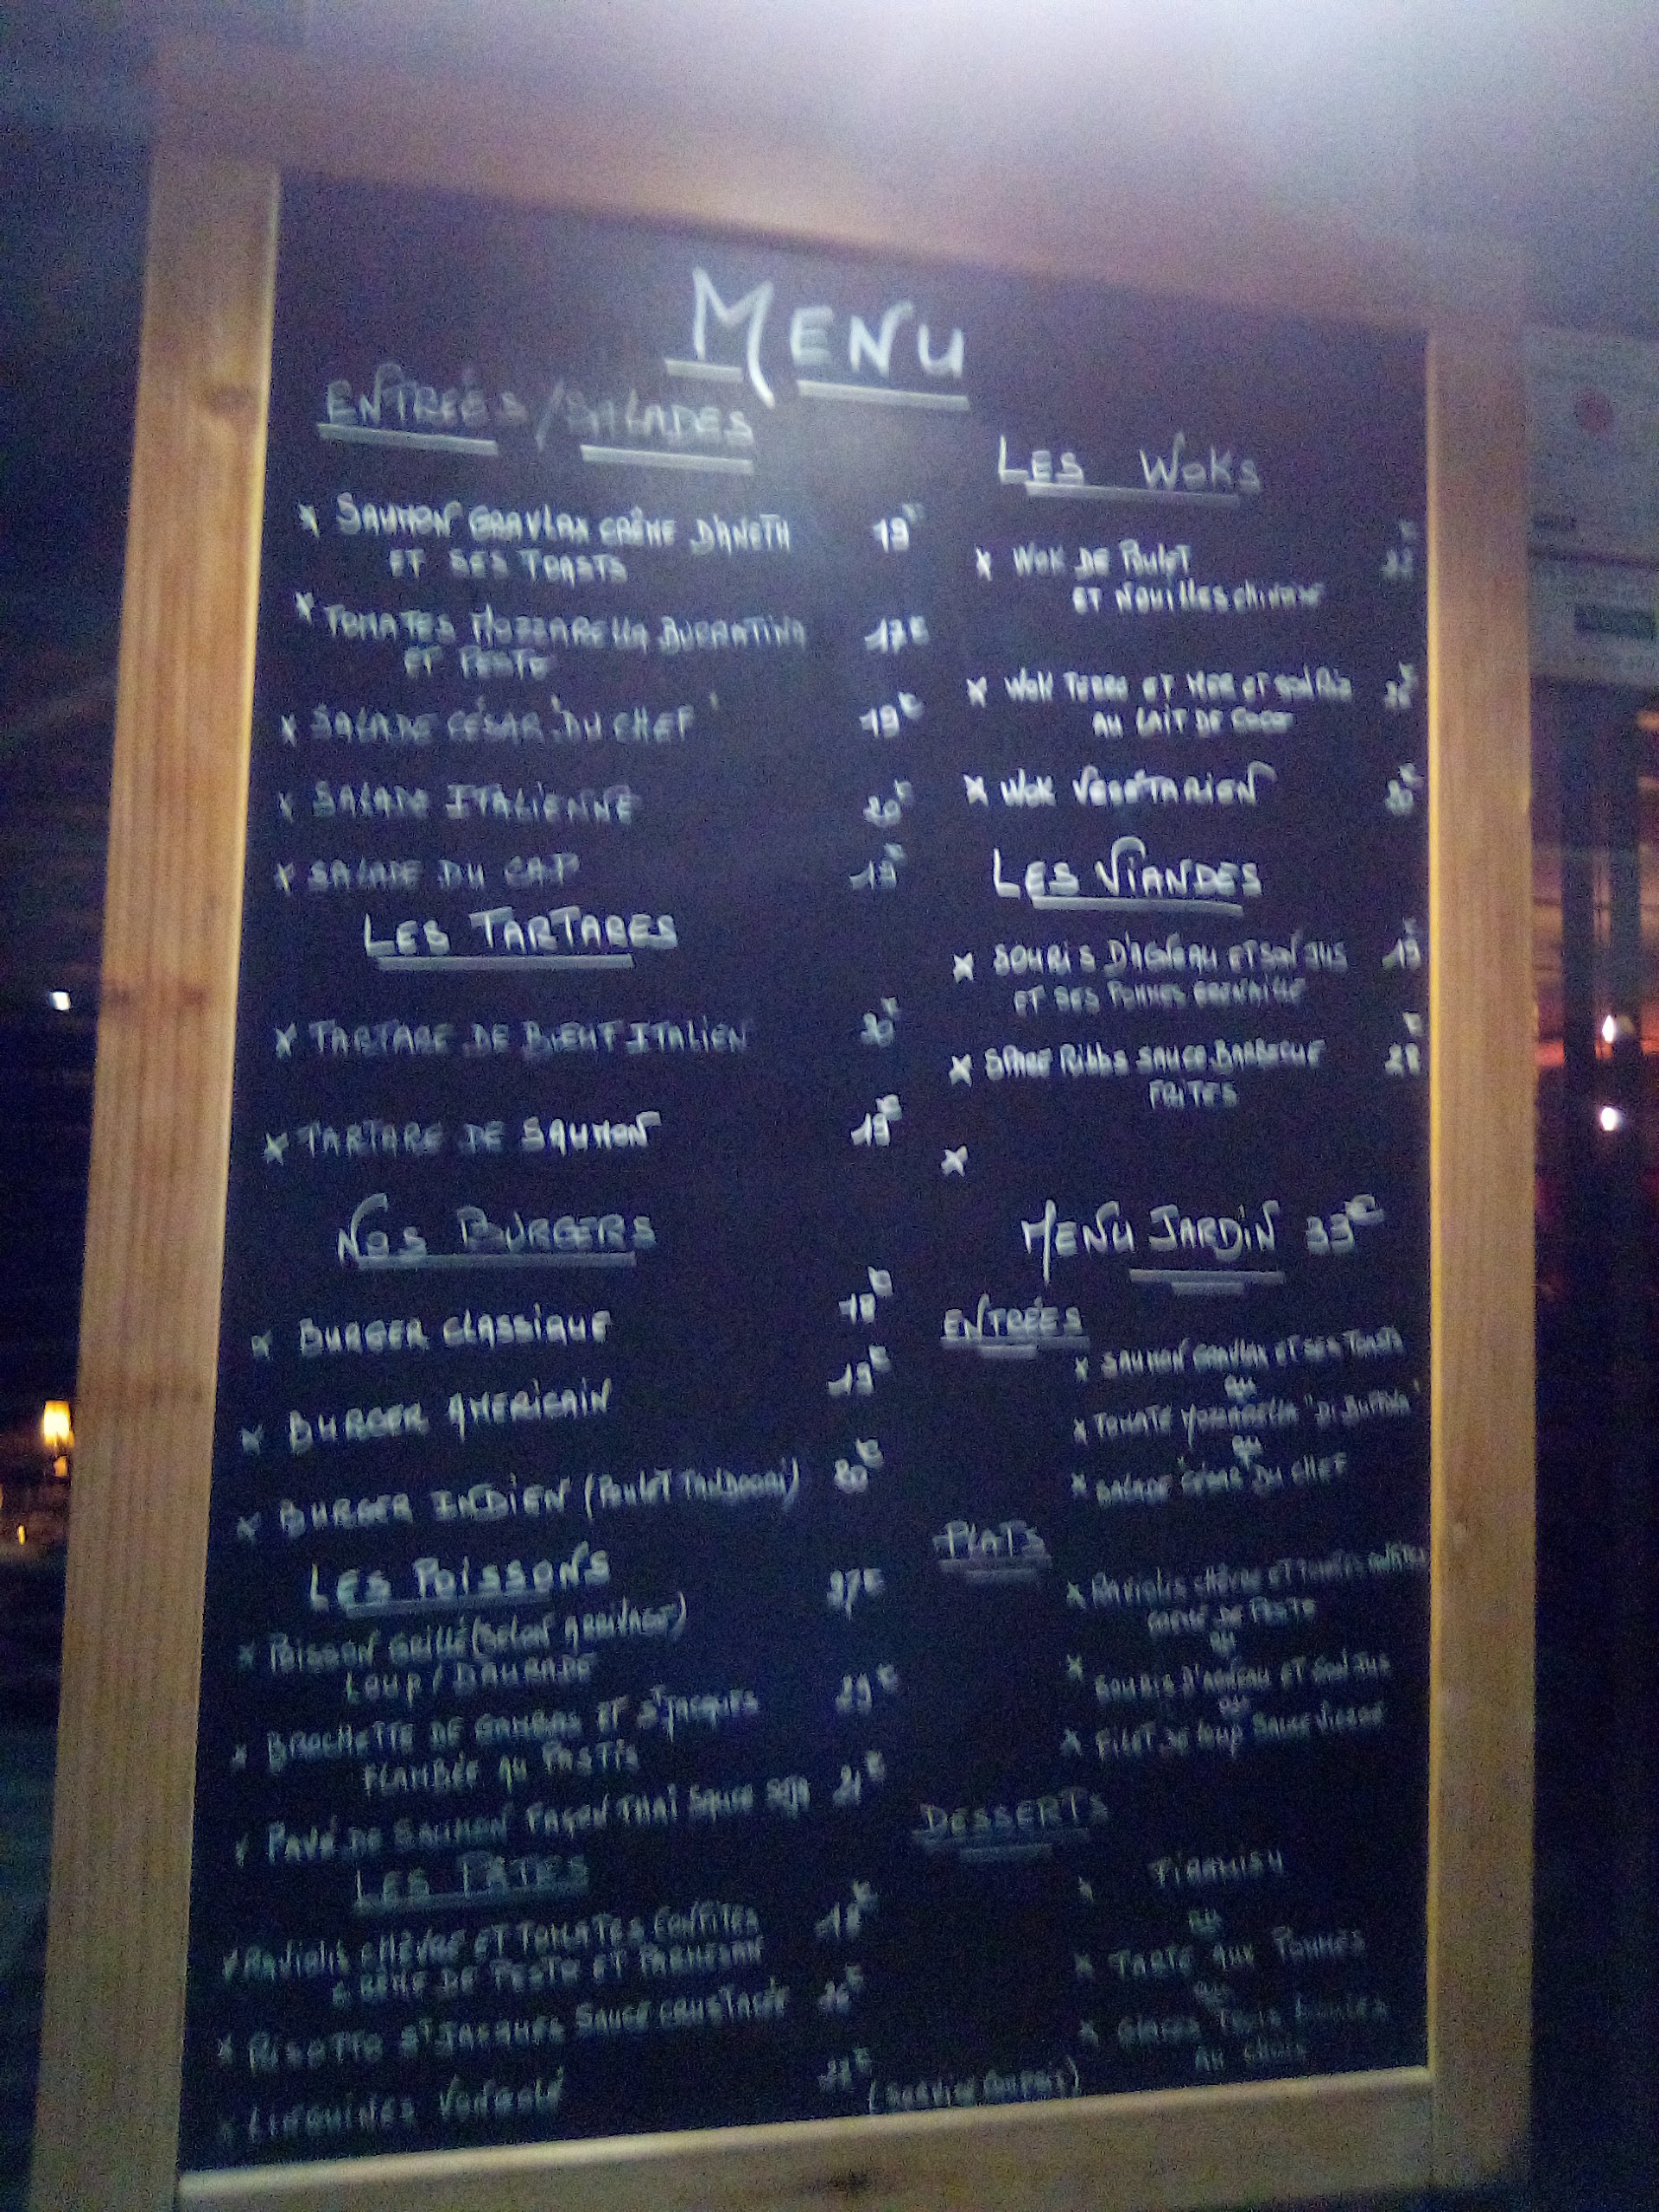 MENU
ENTRÉES / SALADES
x SAUMON GRAVLAX CRÈME D'ANETH 19€
ET SES TOASTS
x TOMATES MOZZARELLA BURRATINA 17€
ET PESTO
x SALADE CÉSAR "DU CHEF" 19€
x SALADE ITALIENNE 20€
x SALADE DU CAP 19€
LES TARTARES
x TARTARE DE BŒUF ITALIEN 20€
x TARTARE DE SAUMON 19€
NOS BURGERS
x BURGER CLASSIQUE 18€
x BURGER AMERICAIN 19€
x BURGER INDIEN (POULET TANDOORI) 20€
LES POISSONS
x POISSON GRILLÉ (SELON ARRIVAGE) 27€
LOUP / DAURADE
x BROCHETTE DE GAMBAS ET ST JACQUES 29€
FLAMBÉE AU PASTIS
x PAVÉ DE SAUMON FAÇON THAÏ SAUCE SOJA 21€
LES PÂTES
x RAVIOLIS CHÈVRE ET TOMATES CONFITES 18€
CRÈME DE PESTO ET PARMESAN
x RISOTTO ST JACQUES SAUCE CRUSTACÉE 26€
x LINGUINES VONGOLE
(SERVICE COMPRIS)
LES WOKS
x WOK DE POULET
ET NOUILLES CHINOISE
x WOK TERRE ET MER ET SON RIZ
AU LAIT DE COCO
x WOK VEGETARIEN 20€
LES VIANDES
x SOURIS D'AGNEAU ET SON JUS 19€
ET SES POMMES GRENAILLE
x SPARE RIBBS SAUCE BARBECUE
FRITES
x
MENU JARDIN 33€
ENTRÉES
x SAUMON GRAVLAX ET SES TOASTS
OU
x TOMATE MOZZARELLA "DI BUFFALA"
OU
x SALADE CÉSAR "DU CHEF"
PLATS
x RAVIOLIS CHÈVRE ET TOMATES CONFITES
CRÈME DE PESTO
OU
x SOURIS D'AGNEAU ET SON JUS
OU
x FILET DE LOUP SAUCE VIERGE
DESSERTS
x TIRAMISU
OU
x TARTE AUX POMMES
OU
x GLACES TROIS BOULES
AU CHOIX